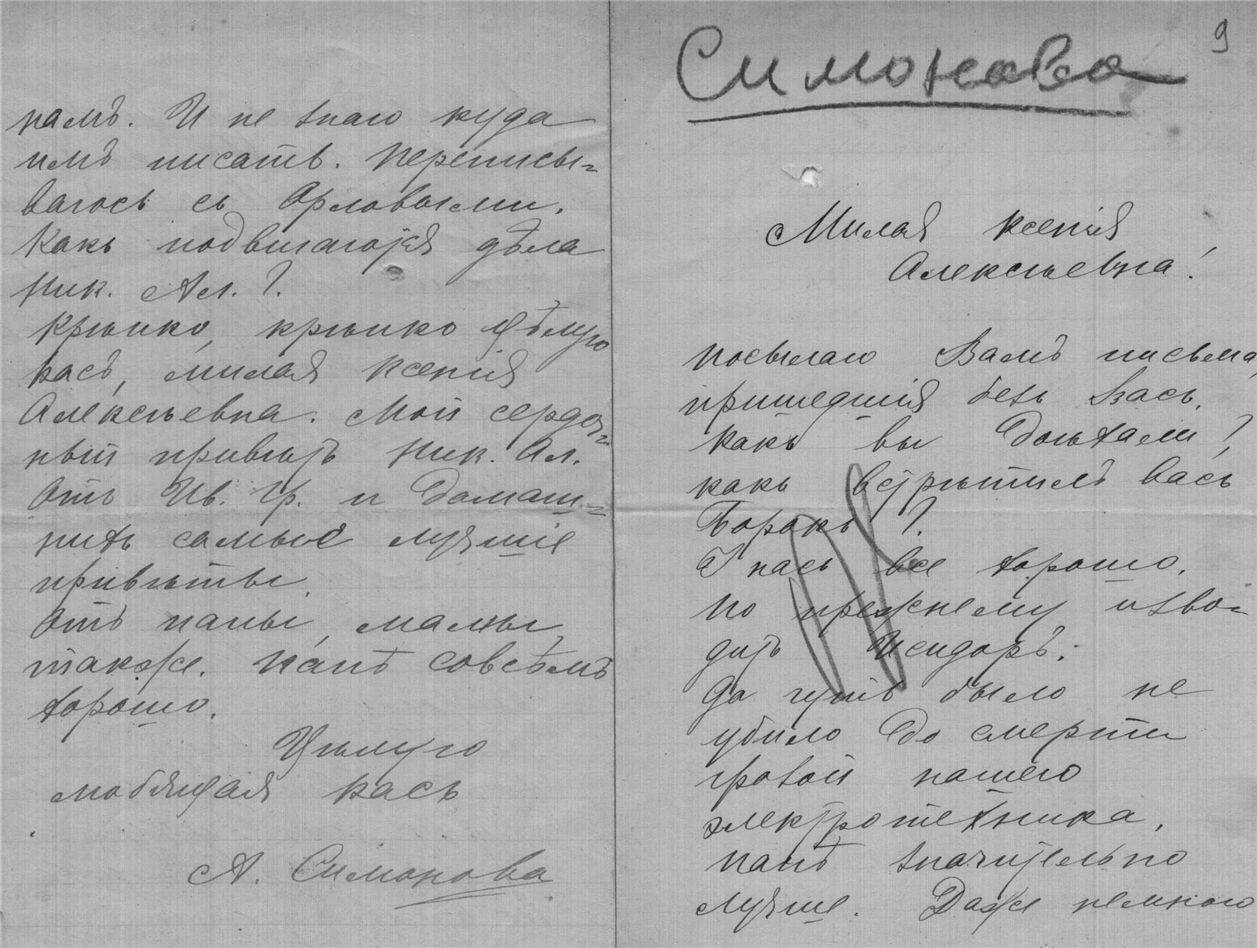 9
Симонова
Милая Ксенія
Алексѣевна!
Посылаю Вамъ письма,
пришедшія безъ Васъ.
Какъ вы доѣхали?
Какъ встрѣтилъ Васъ
Торокъ?
У насъ все хорошо.
По прежнему изво-
дитъ Исидоръ.
Да чуть было не
убило до смерти
грозой нашего
электротехника.
Папѣ значительно
лучше. Даже немного
намъ. И не знаю куда
имъ писать. Переписы-
ваюсь съ Орловыми.
Какъ подвигаются дѣла
Ник. Ал.?
Крѣпко, крѣпко цѣлую
Васъ, милая Ксенія
Алексѣевна. Мой сердеч-
ный привѣтъ Ник. Ал.
Отъ Ив. Гр. и домаш-
нихъ самые лучшіе
привѣты.
Отъ папы, мамы,
также. Папѣ совсѣмъ
хорошо.
Цѣлую
любящая Васъ
А. Симонова